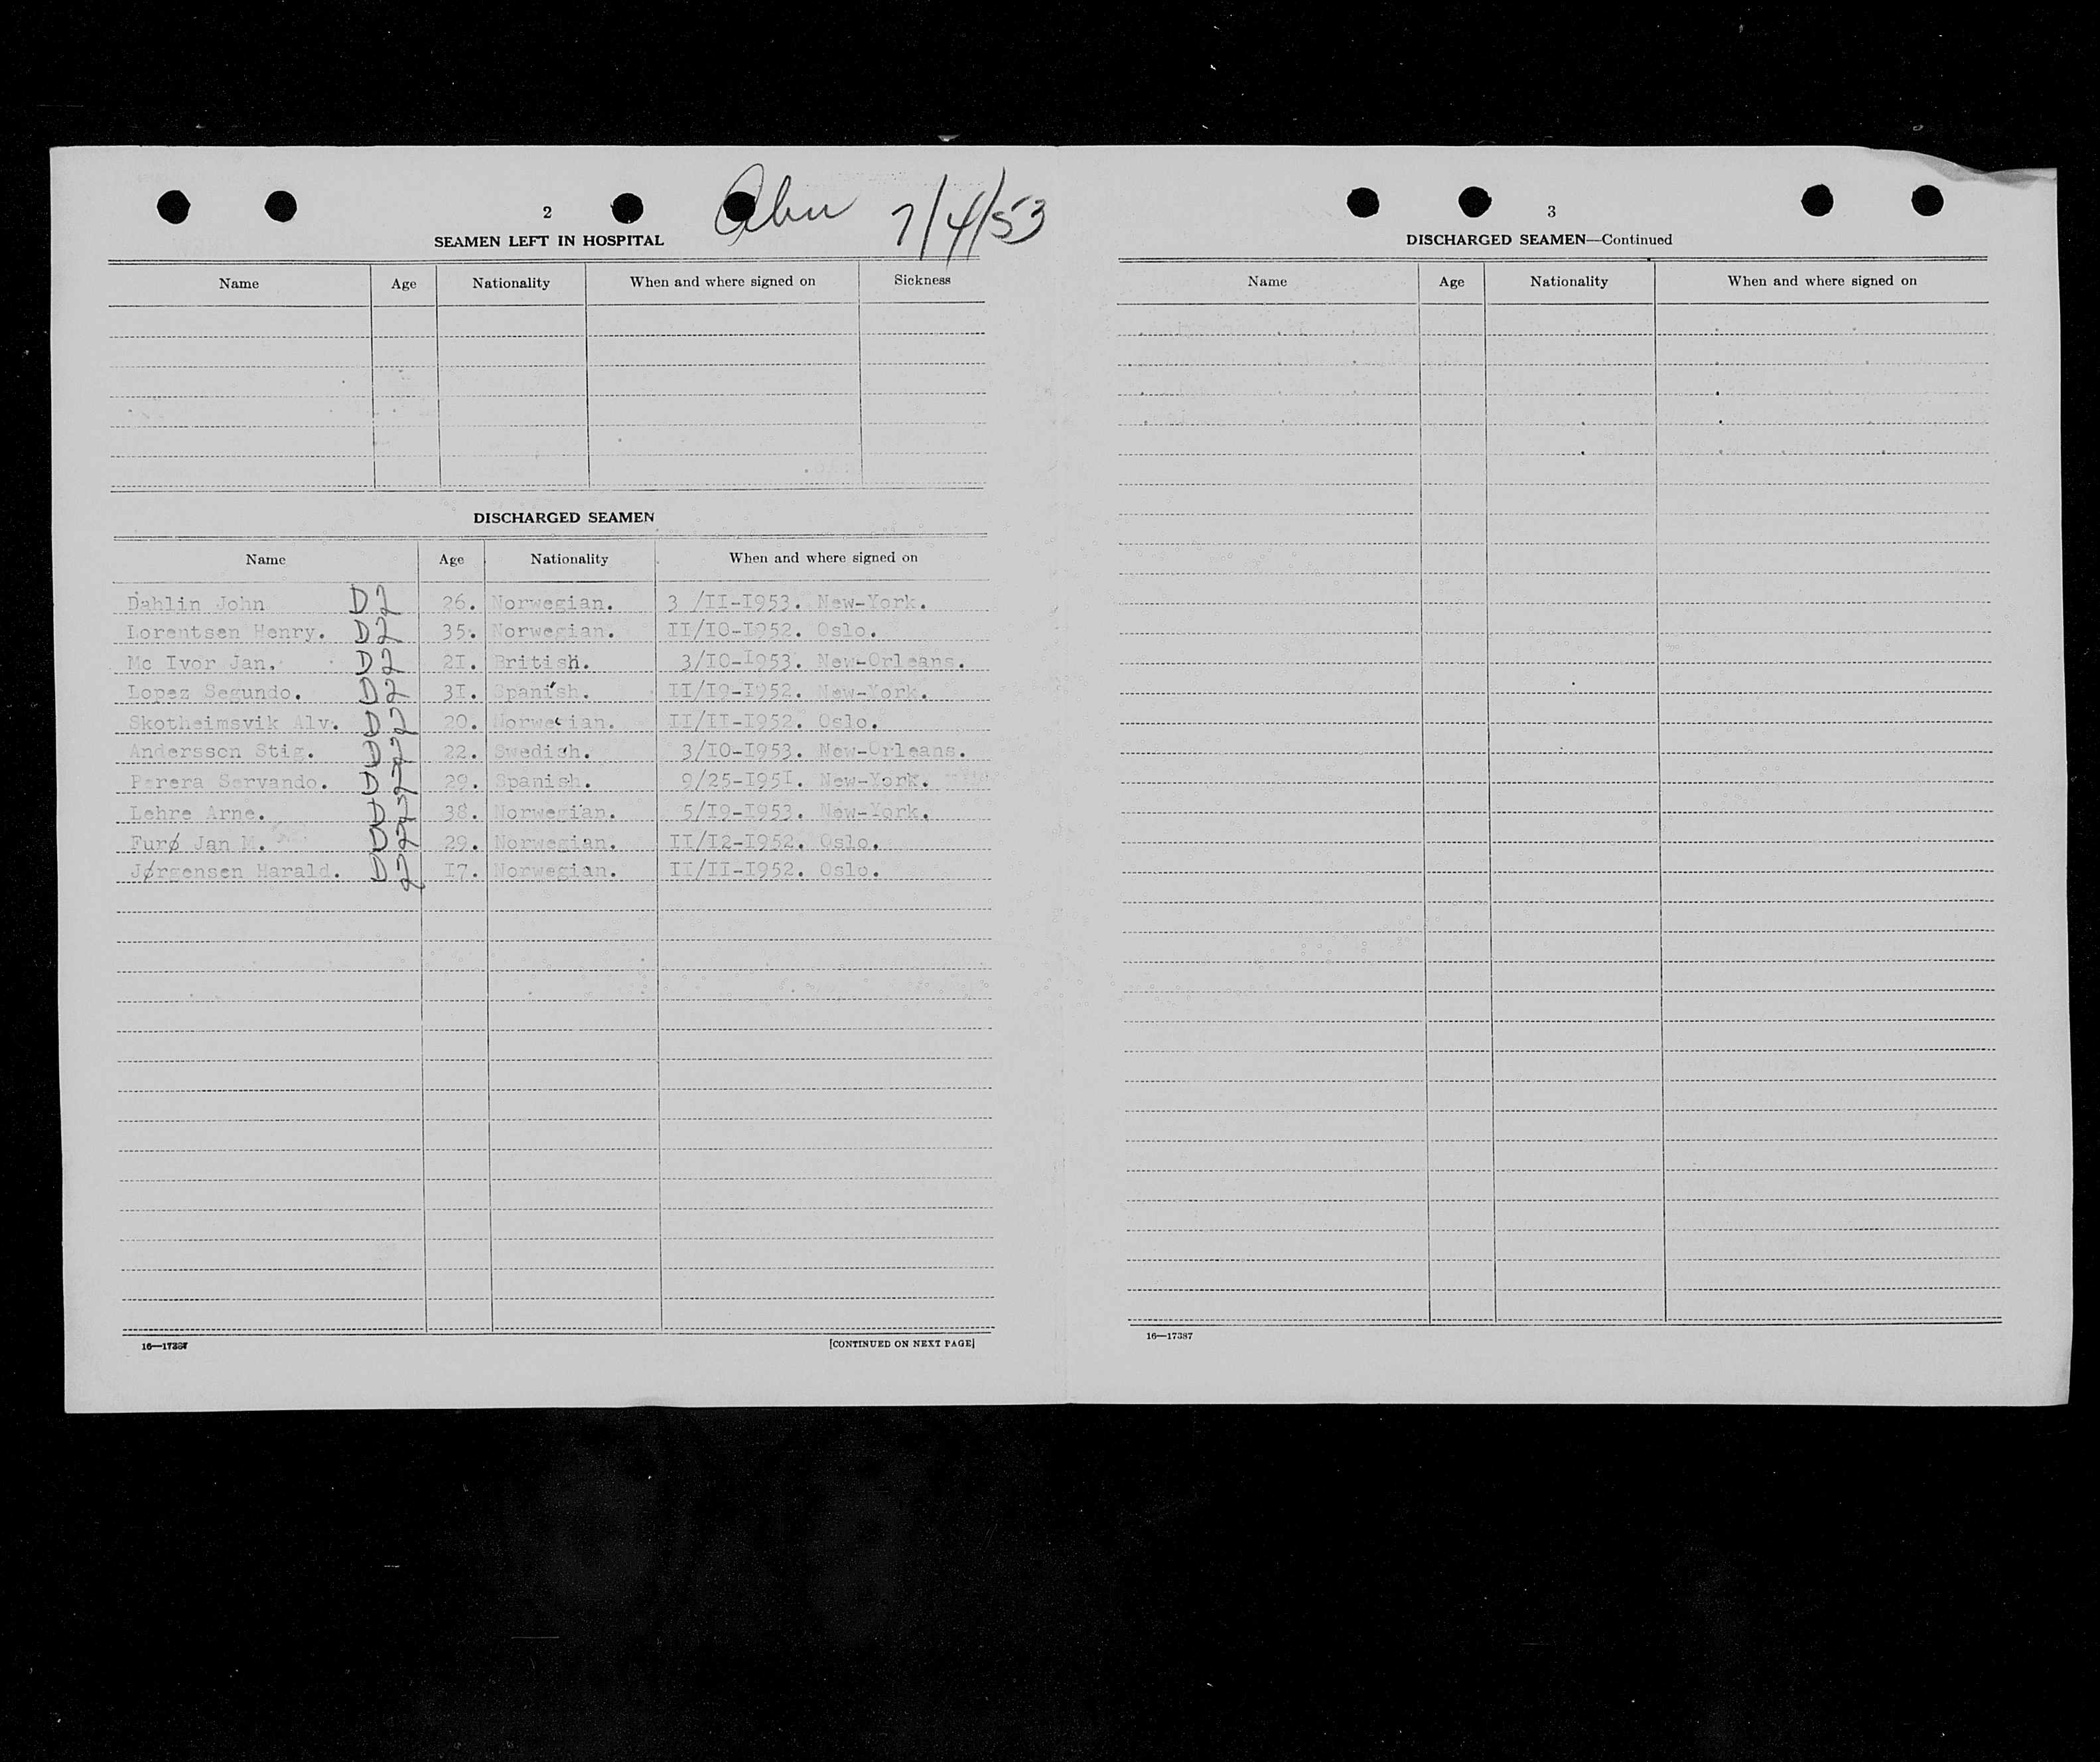 2
7/4/53
SEAMEN LEFT IN HOSPITAL
Name Age Nationality When and where signed on Sickness
DISCHARGED SEAMEN
Name Age Nationality When and where signed on
Dahlin John D2 26. Norwegian. 3 /II-I953. New-York.
Lorentsen Henry. D2 35. Norwegian. II/IO-I952. Oslo.
Mc Ivor Jan. D2 2I. British. 3/IO-I953. New-Orleans.
Lopez Segundo. D2 3I. Spanish. II/I9-I952. New-York.
Skotheimsvik Alv. D2 20. Norwegian. II/II-I952. Oslo.
Andersson Stig. D2 22. Swedish. 3/IO-I953. New-Orleans.
Perera Servando. D2 29. Spanish. 9/25-I95I. New-York.
Lehre Arne. D2 38. Norwegian. 5/I9-I953. New-York.
Furø Jan M. D2 29. Norwegian. II/I2-I952. Oslo.
Jørgensen Harald. D2 I7. Norwegian. II/II-I952. Oslo.
16—17387 [CONTINUED ON NEXT PAGE]
3
DISCHARGED SEAMEN—Continued
Name Age Nationality When and where signed on
16—17387